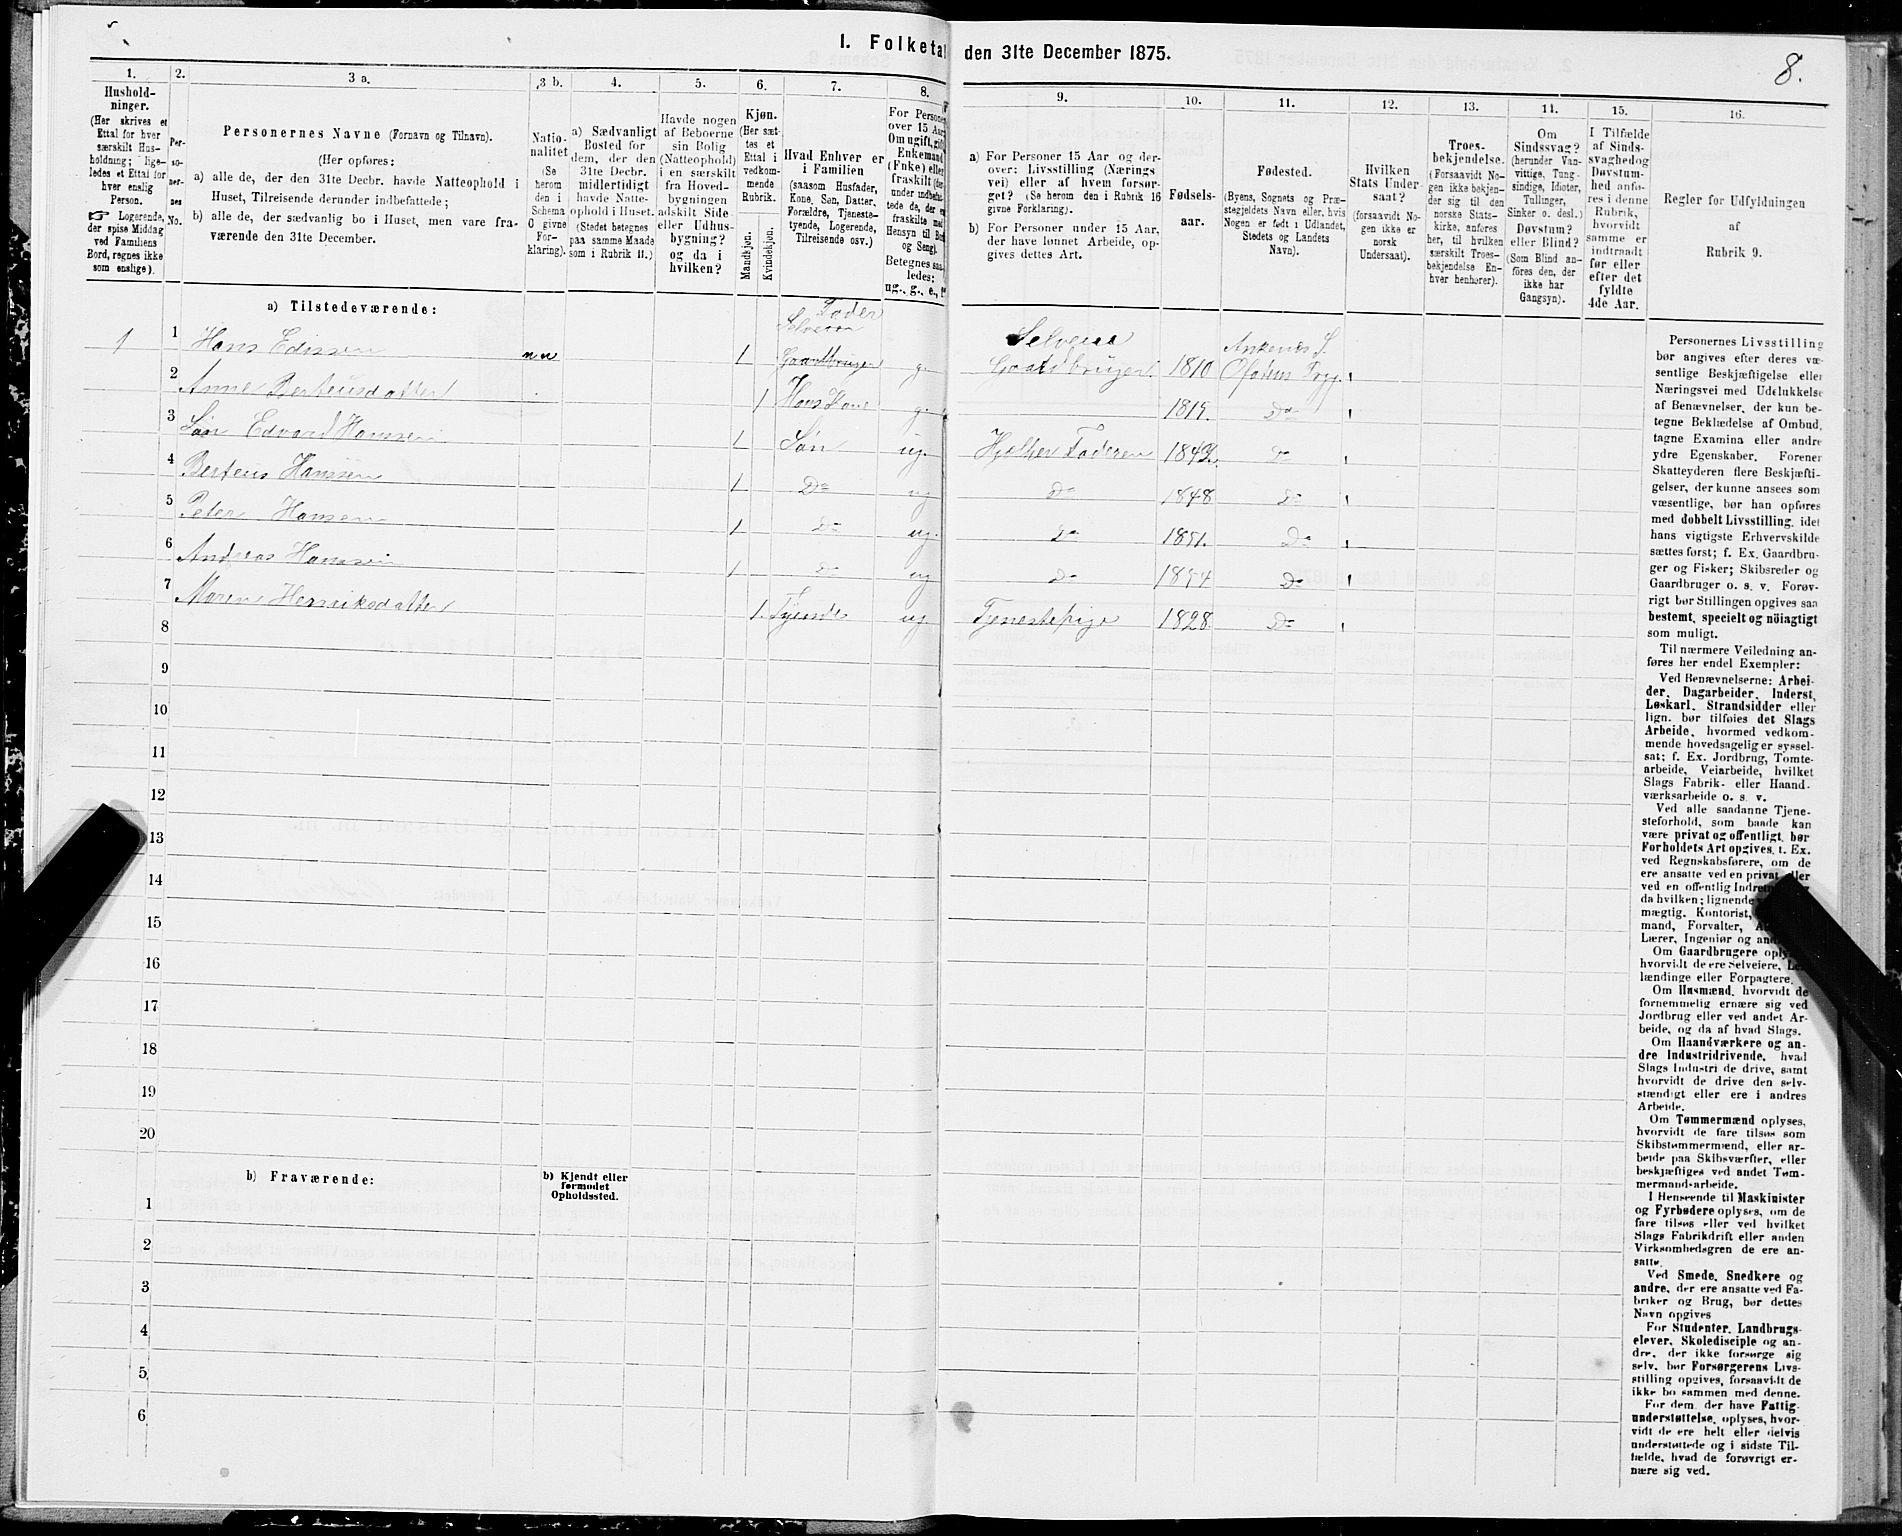 I. Folketal den 31te December 1875.
8.
1.
Hushold-
ninger.
(Her skrives et
Ettal for hver
særskilt Hus-
holdning; lige-
ledes et Ettal for
hver enslig
Person.
☞ Logerende,
der spise Middag
ved Familiens
Bord, regnes ikke
som enslige).
2.
Per-
so-
ner-
nes
No.
3 a.
Personernes Navne (Fornavn og Tilnavn).
(Her opføres:
a) alle de, der den 31te Decbr. havde Natteophold i
Huset, Tilreisende derunder indbefattede;
b) alle de, der sædvanlig bo i Huset, men vare fra-
værende den 31te December.
3 b.
Natio-
nalitet
(Se
herom
den i
Schema
0 givne
For-
klaring).
4.
a) Sædvanligt
Bosted for
dem, der den
31te Decbr.
midlertidigt
havde Natte-
ophold i Huset.
(Stedet betegnes
paa samme Maade
som i Rubrik 11.)
5.
Havde nogen
af Beboerne
sin Bolig
(Natteophold)
i en særskilt
fra Hoved-
bygningen
adskilt Side-
eller Udhus-
bygning?
og da i
hvilken?
6.
Kjøn.
(Her sæt-
tes et
Ettal i
vedkom-
mende
Rubrik.
Mandkjøn.
Kvindekjøn.
7.
Hvad Enhver er
i Familien
(saasom Husfader,
Kone, Søn, Datter,
Forældre, Tjeneste-
tyende, Logerende,
Tilreisende osv.)
8.
For Personer
over 15 Aar:
Om ugift, gift,
Enkemand
(Enke) eller
fraskilt
9.
a) For Personer 15 Aar og der-
over: Livsstilling (Nærings-
vei) eller af hvem forsør-
get? (Se herom den i Rubrik 16
givne Forklaring).
b) For Personer under 15 Aar,
der have lønnet Arbeide, op-
gives dettes Art.
10.
Fødsels-
aar.
11.
Fødested.
(Byens, Sognets og Præ-
stegjeldets Navn eller, hvis
Nogen er født i Udlandet,
Stedets og Landets
Navn).
12.
Hvilken
Stats Under-
saat?
(forsaavidt No-
gen ikke er
norsk
Undersaat).
13.
Troes-
bekjendelse.
(Forsaavidt No-
gen ikke bekjen-
der sig til den
norske Stats-
kirke, anføres
her, til hvilken
særskilt Troes-
bekjendelse En-
hver henhører).
14.
Om
Sindssvag?
(herunder Van-
vittige, Tung-
sindige, Idioter,
Tullinger,
Sinker o. desl.)
Døvstum?
eller Blind?
(Som Blind an-
føres den, der
ikke har
Gangsyn).
15.
I Tilfælde
af Sinds-
svaghed og
Døvstum-
hed anfø-
res i denne
Rubrik,
hvorvidt
samme er
indtraadt
før eller
efter det
fyldte
4de Aar.
16.
Regler for Udfyldningen
af
Rubrik 9.
a) Tilstedeværende:
1 1 Hans nn 1 Fader Selveier Gaardbruger g. Selveier Gaardbruger. 1810 Ankenes S. Ofotens
2 Anne 1 Hans Kone g. 1819. Do
3 Søn Edvard Hanssen 1 Søn ug. Hjelper Faderen Do
4 Berteus Hanssen 1 Do ug Do 1848 Do
5 Peter Hansen 1 Do ug. Do 1851. Do
6 Andreas Hanssen 1 Do ug Do 1854 Do
7 Maren Henriksdatter 1. Tyende ug. Tjenestepige 1828. Do
8
9
10
11
12
13
14
15
16
17
18
19
20
b) Fraværende:
b) Kjendt eller
formodet
Opholdssted.
1
2
3
4
5
6
Personernes Livsstilling
bør angives efter deres væ-
sentlige Beskjæftigelse eller
Næringsvei med Udelukkelse
af Benævnelser, der kun be-
tegne Beklædelse af Ombud,
tagne Examina eller andre
ydre Egenskaber. Forener
Skatteyderen flere Beskjæfti-
gelser, der kunne ansees som
væsentlige, bør han opføres
med dobbelt Livsstilling, idet
hans vigtigste Erhvervskilde
sættes først; f. Ex. Gaardbru-
ger og Fisker; Skibsreder og
Gaardbruger o. s. v. Forøv-
rigt bør Stillingen opgives saa
bestemt, specielt og nøiagtigt
som muligt.
Til nærmere Veiledning an-
føres her endel Exempler:
Ved Benævnelserne: Arbei-
der, Dagarbeider, Inderst,
Løskarl, Strandsidder eller
lign. bør tilføies det Slags
Arbeide, hvormed vedkom-
mende hovedsagelig er syssel-
sat; f. Ex. Jordbrug, Tomte-
arbeide, Veiarbeide, hvilket
Slags Fabrik- eller Haand-
værksarbeide o. s. v.
Ved alle saadanne Tjene-
steforhold, som baade kan
være privat og offentligt, bør
Forholdets Art opgives, t. Ex.
ved Regnskabsførere, om de
ere ansatte ved en privat eller
ved en offentlig
da hvilken; lignende
mægtig, Kontorist,
mand, Forvalter,
Lærer, Ingeniør og
Om Gaardbrugere
hvorvidt de ere Selveiere,
lændinge eller Forpagtere.
Om Husmænd, hvorvidt de
fornemmelig ernære sig ved
Jordbrug eller ved andet Ar-
beide, og da af hvad Slags.
Om Haandværkere og an-
dre Industridrivende, hvad
Slags Industri de drive, samt
hvorvidt de drive den selv-
stændigt eller ere i andres
Arbeide.
Om Tømmermænd oplyses,
hvorvidt de fare tilsøs som
Skibstømmermænd, eller ar-
beide paa Skibsværfter, eller
beskjæftiges ved andet Tøm-
mermandsarbeide.
I Henseende til Maskinister
og Fyrbødere oplyses, om de
fare tilsøs eller ved hvilket
Slags Fabrikdrift eller anden
Virksomhedsgren de ere an-
satte.
Ved Smede, Snedkere og
andre, der ere ansatte ved Fa-
briker og Brug, bør dettes
Navn opgives
For Studenter, Landbrugs-
elever, Skoledisciple og an-
dre, der ikke forsørge sig
selv, bør Forsørgerens Livs-
stilling opgives, forsaavidt de
ikke bo sammen med denne.
For dem, der have Fattig-
understøttelse, oplyses, hvor-
vidt de ere helt eller delvis
understøttede og i sidste Til-
fælde, hvad de forøvrigt er-
nære sig ved.